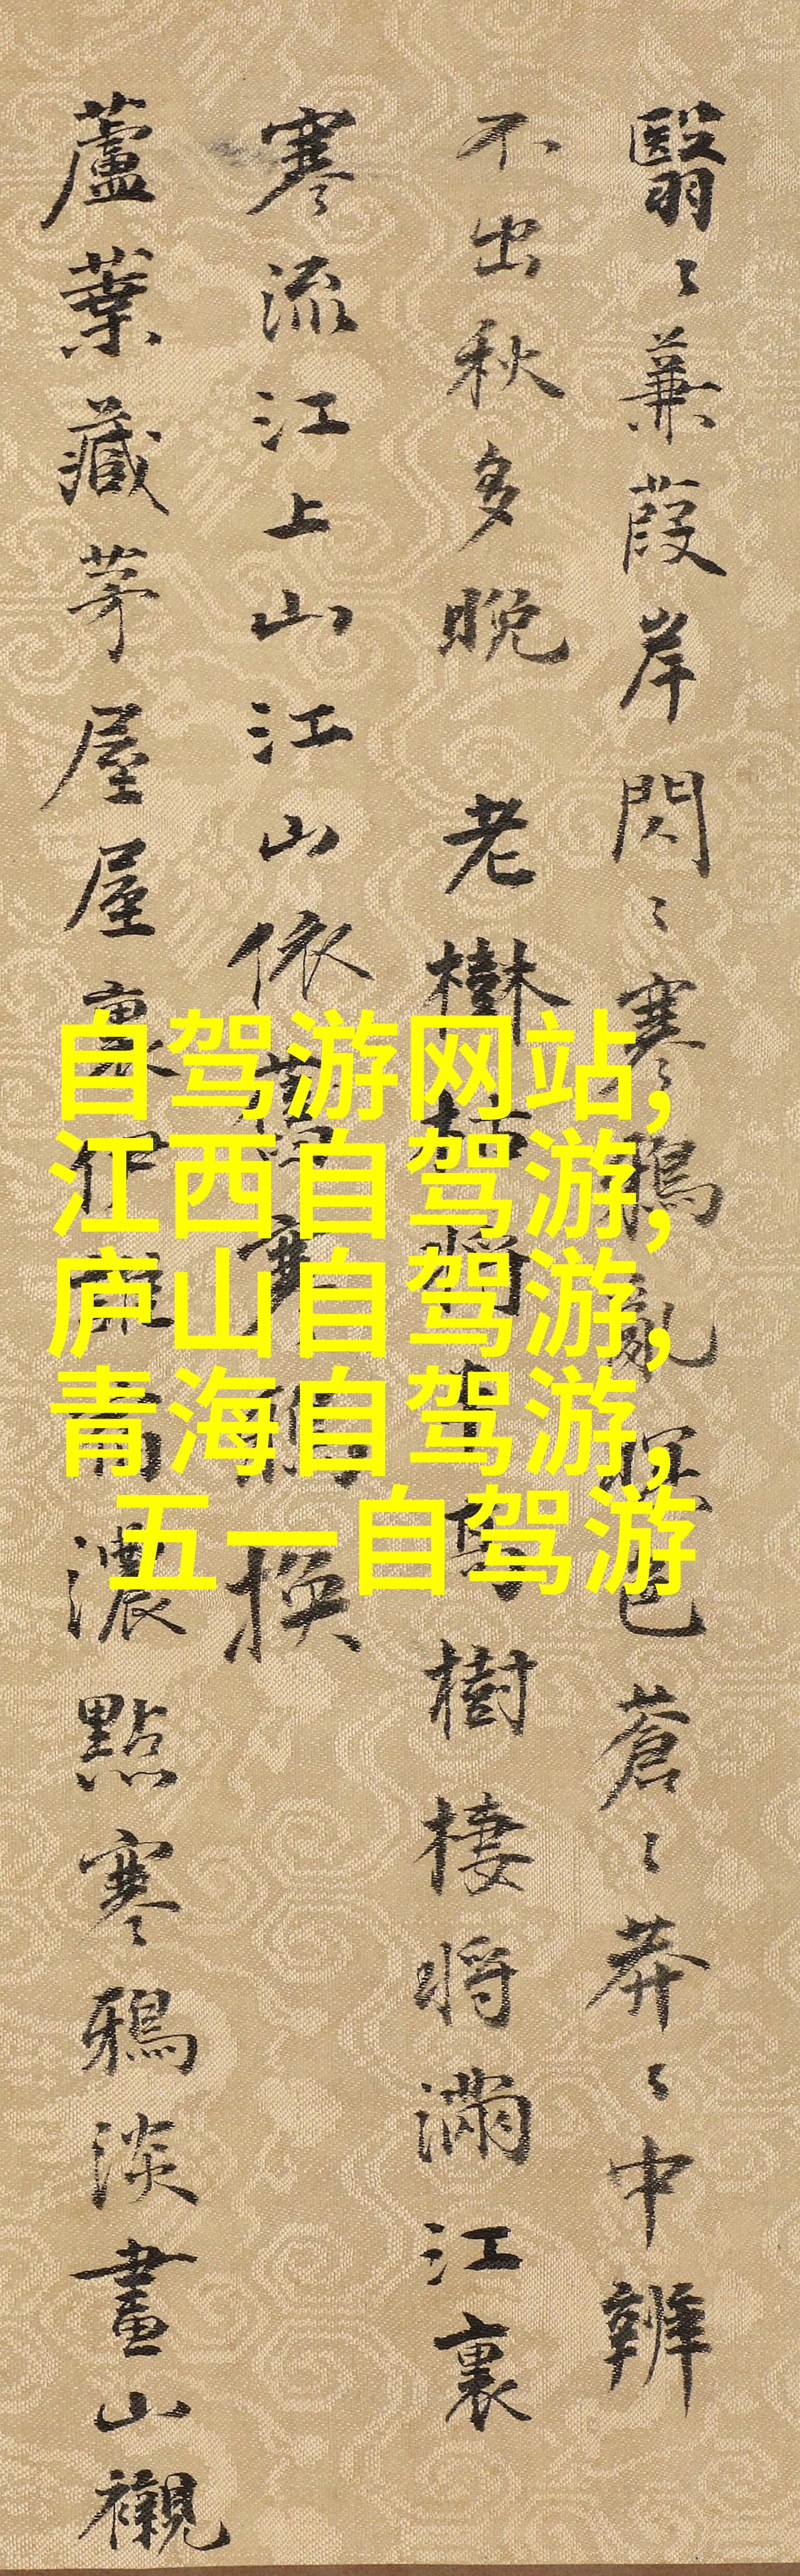 翳〻蒹葭岸閃〻寒鴉亂色蒼〻莽〻中辨
不出秋多晚 老樹枯將樹棲將滿江裏
寒流江上山江山依舊寒鴉換
蘆葉藏茅屋屋裏伊誰濃點寒鴉淡畫山襯
自驾游网站,
江西自驾游,
庐山自驾游,
青海自驾游,
五一自驾游